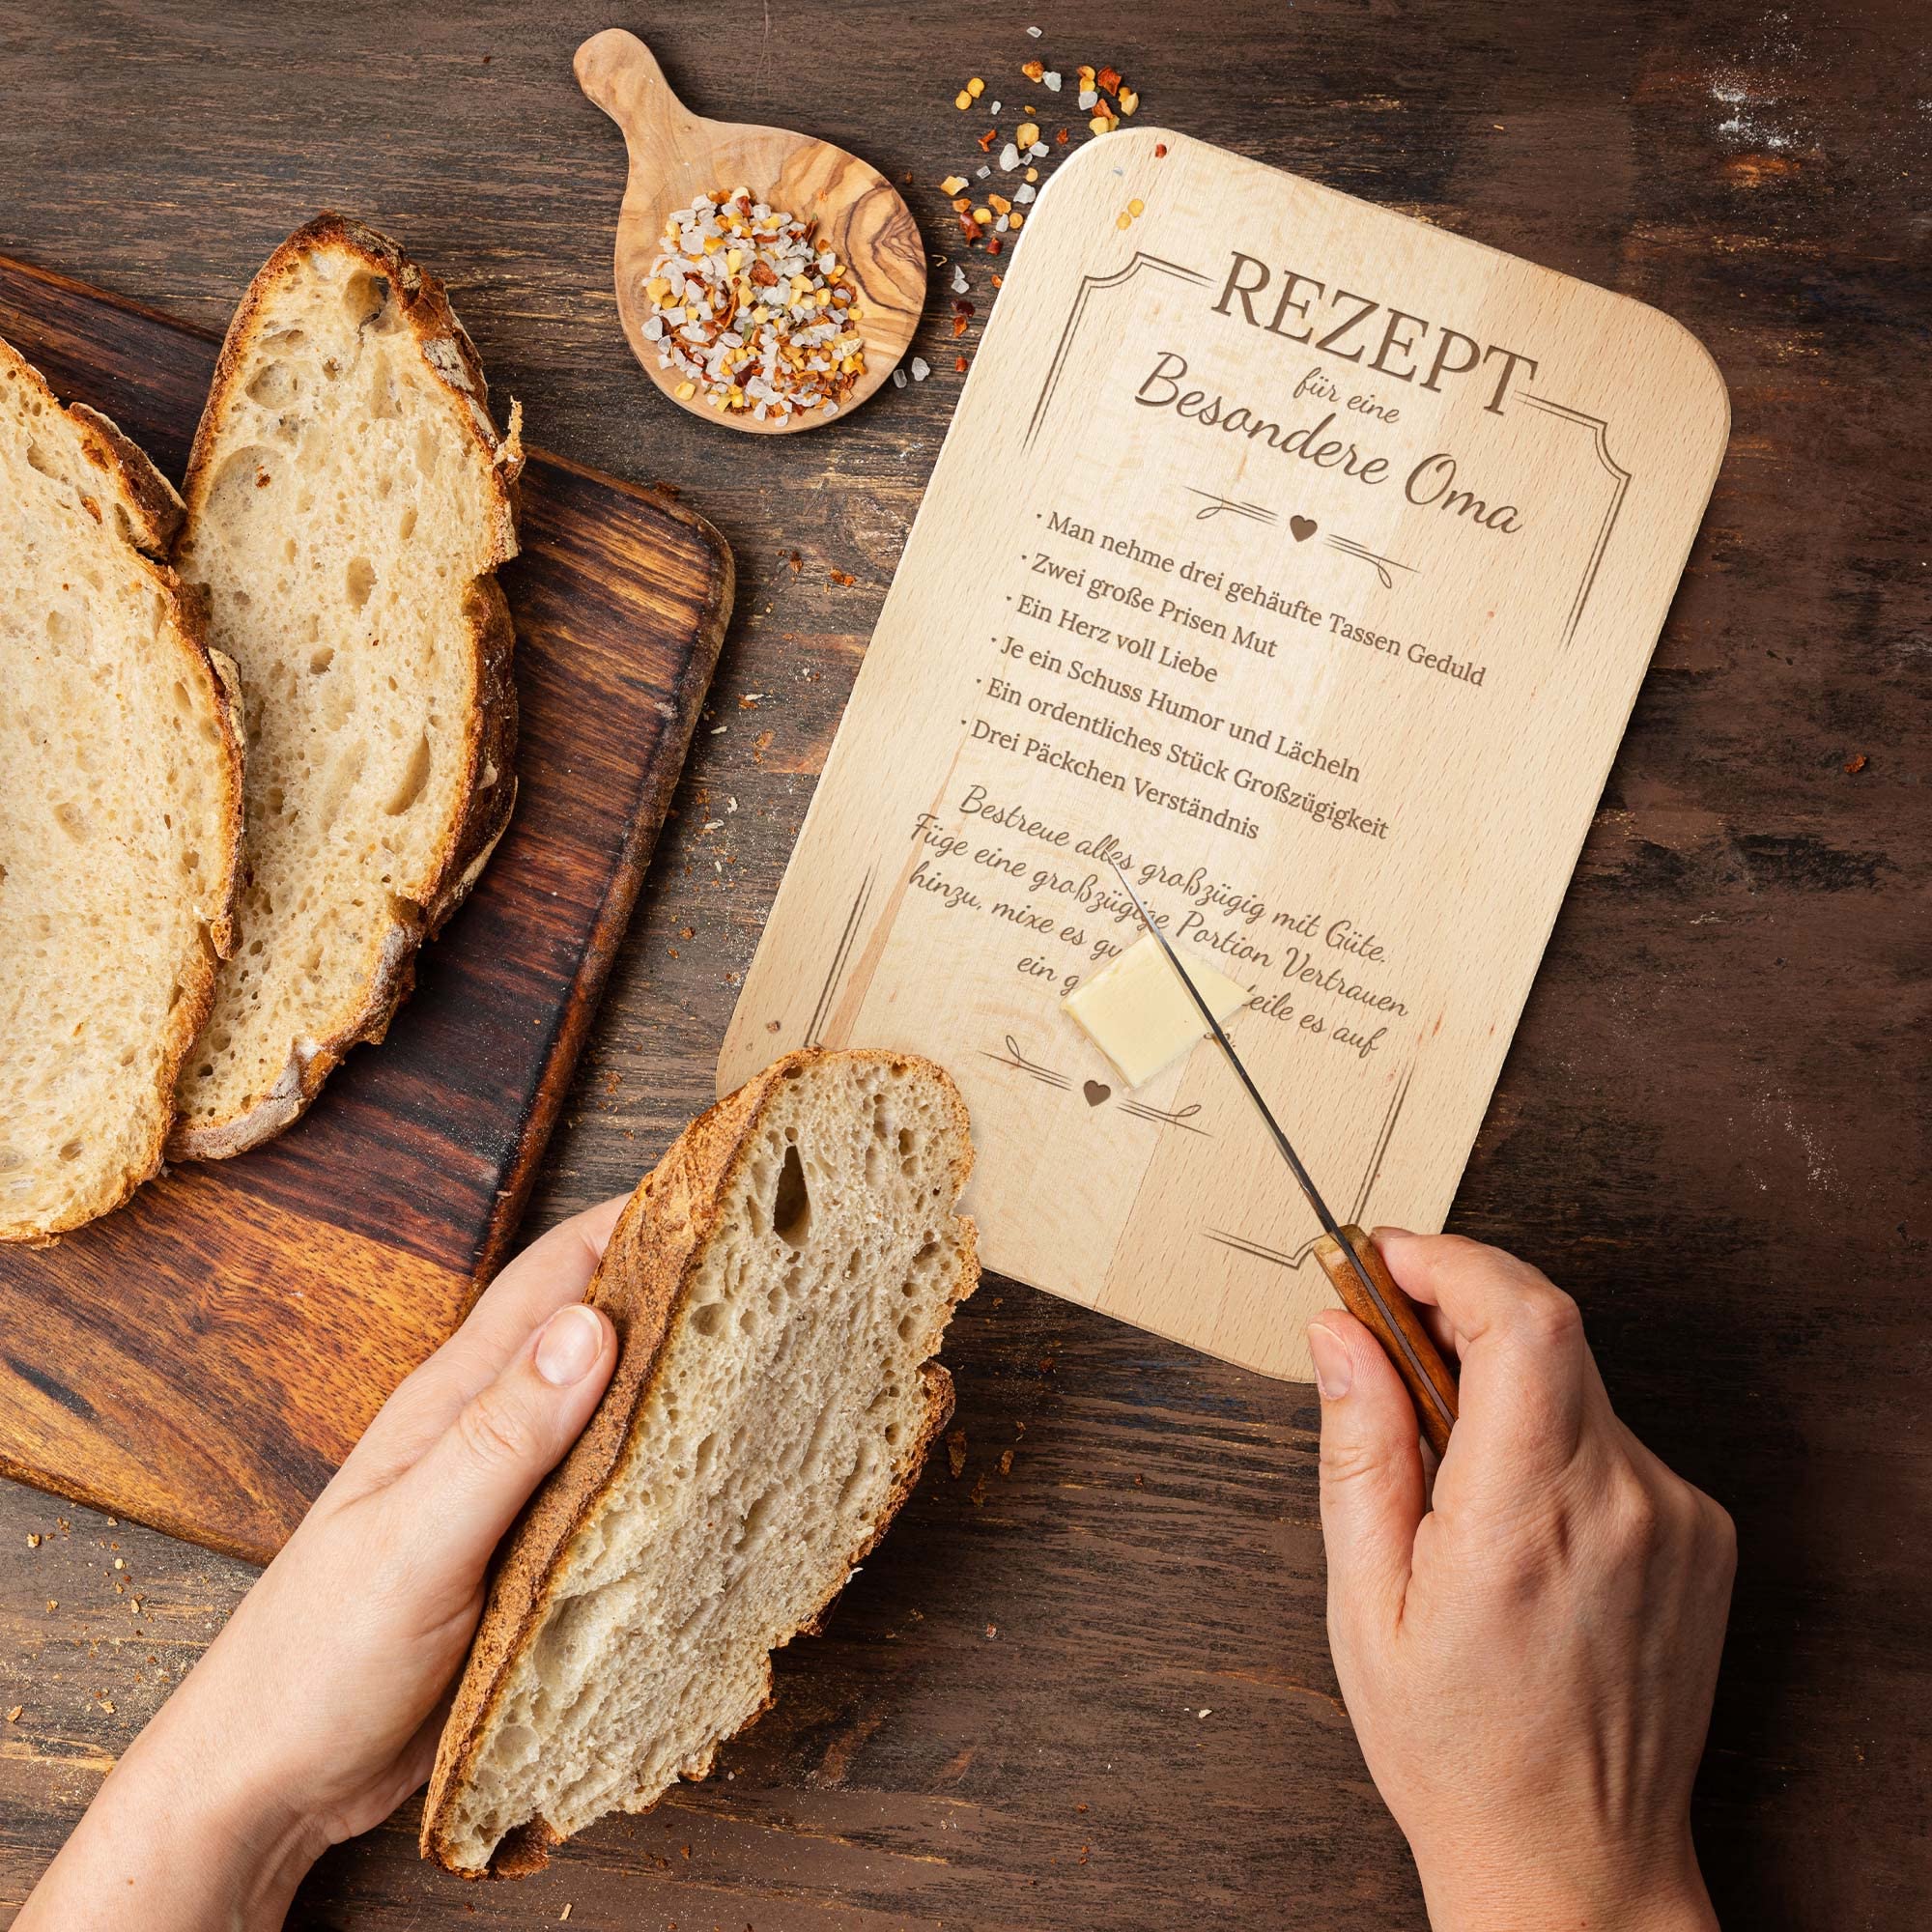 REZEPT
für eine
Besondere Oma
· Man nehme drei gehäufte Tassen Geduld
· Zwei große Prisen Mut
· Ein Herz voll Liebe
· Je ein Schuss Humor und Lächeln
· Ein ordentliches Stück Großzügigkeit
· Drei Päckchen Verständnis
Bestreue alles großzügig mit Güte.
Füge eine großzügige Portion Vertrauen
hinzu, mixe es es auf
ein